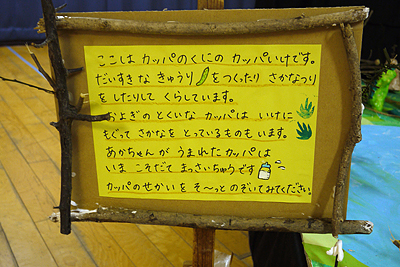 ここは カッパのくにの カッパいけです。
だいすきな きゅうり をつくったり さかなつり
をしたりして くらしています。
およぎの とくいな カッパは いけに
もぐって さかなを とっているものも います。
あかちゃんが うまれたカッパは
いま こそだて まっさいちゅうです
カッパのせかいを そ〜っと のぞいてみてください。